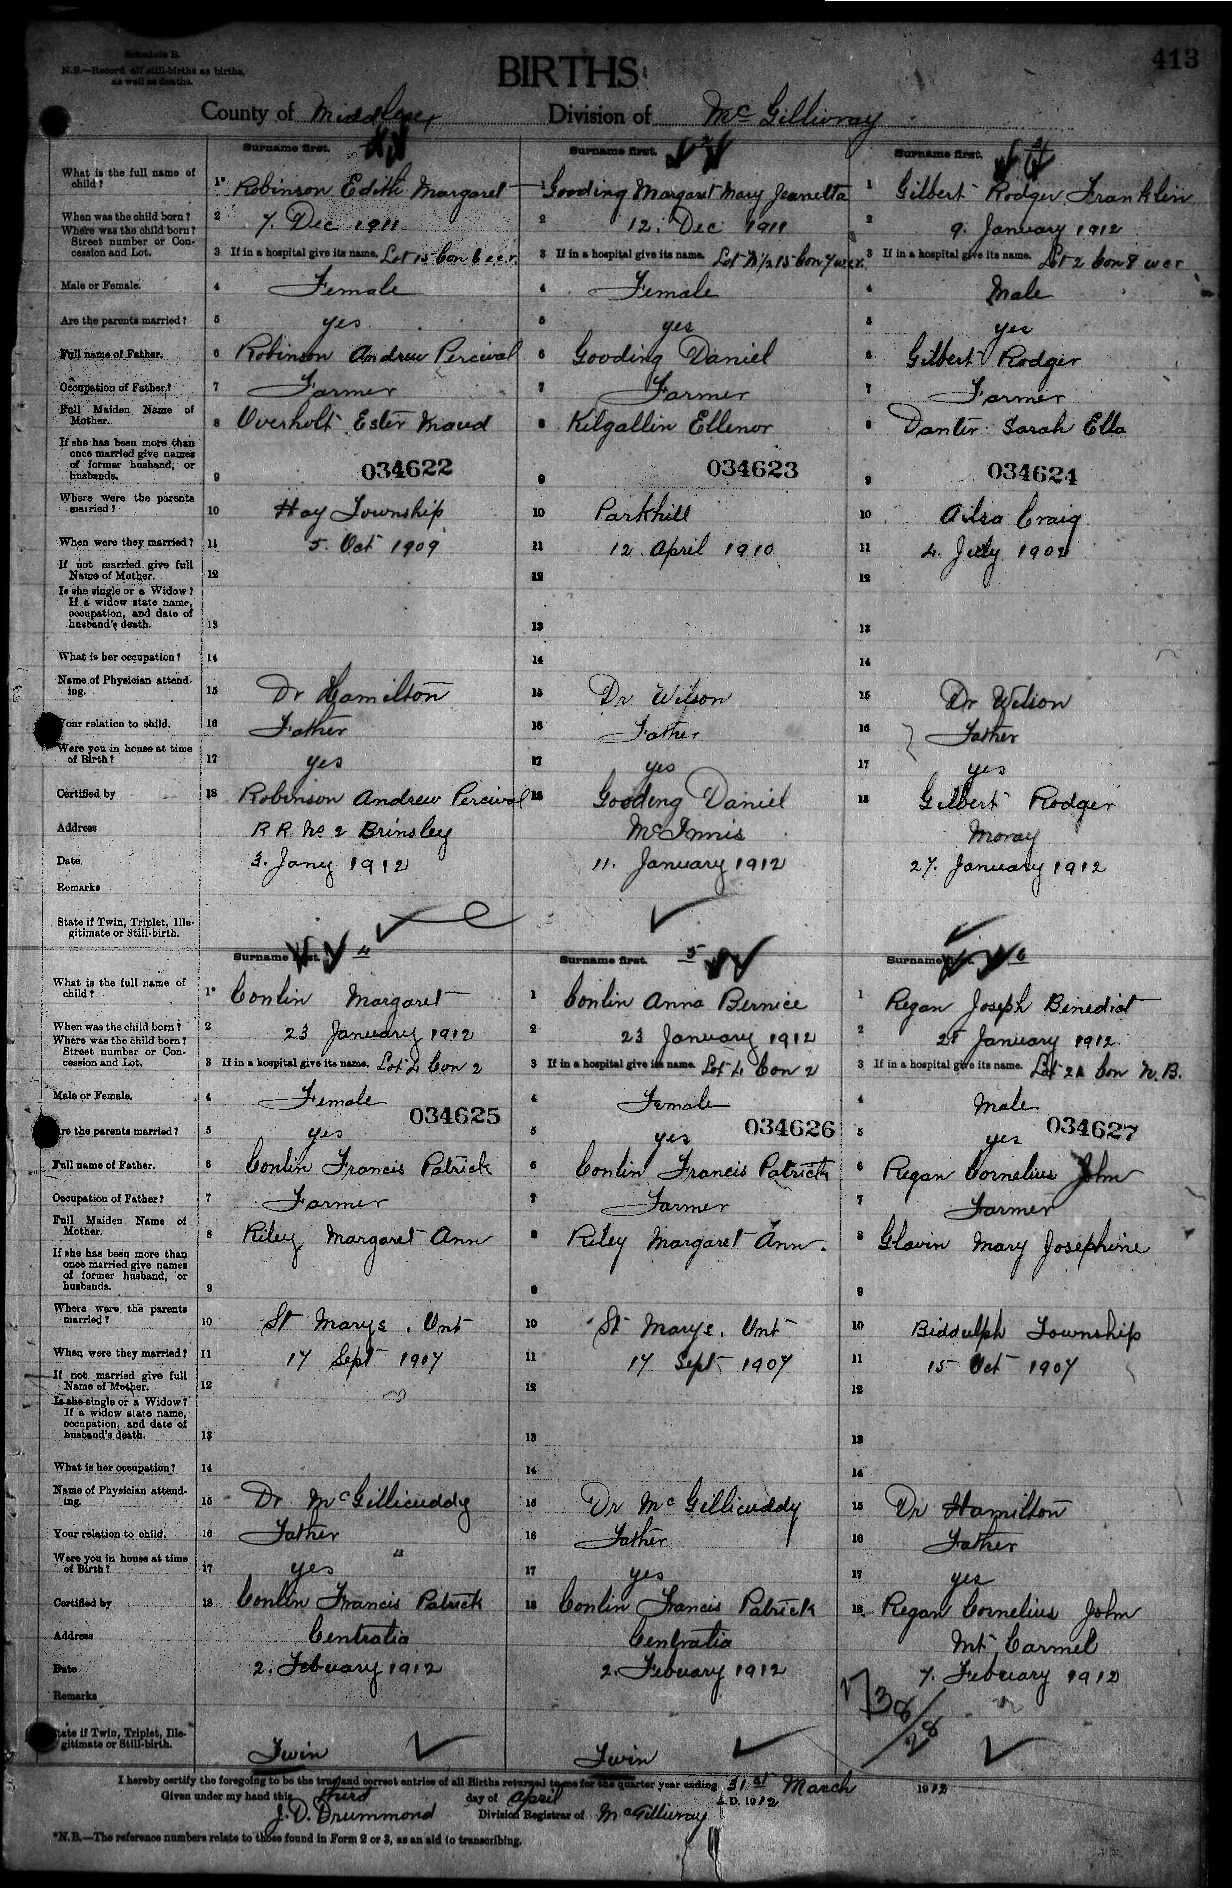 Schedule B.
N.B.—Record all still-births as births,
as well as deaths.
BIRTHS
413
County of Middlesex Division of McGillivray
Surname first. Surname first. Surname first.
What is the full name of child? 1* Robinson Edith Margaret 1 Gooding Margaret Mary Jeanetta 1 Gilbert Rodger Franklin
When was the child born? 2 7. Dec 1911 2 12. Dec 1911 2 9. January 1912
Where was the child born? Street number or Concession and Lot. 3 If in a hospital give its name. Lot 15 Con 6 e.c.r. 3 If in a hospital give its name. Lot N 1/2 15 Con 7 w.c.r. 3 If in a hospital give its name. Lot 2 Con 8 w c r
Male or Female. 4 Female 4 Female 4 Male
Are the parents married? 5 yes 5 yes 5 yes
Full name of Father. 6 Robinson Andrew Percival 6 Gooding Daniel 6 Gilbert Rodger
Occupation of Father? 7 Farmer 7 Farmer 7 Farmer
Full Maiden Name of Mother. 8 Overholt Ester Maud 8 Kilgallin Ellenor 8 Danter Sarah Ella
If she has been more than once married give names of former husband, or husbands. 9 034622 9 034623 9 034624
Where were the parents married? 10 Hay Township 10 Parkhill 10 Ailsa Craig
When were they married? 11 5. Oct 1909 11 12. April 1910 11 4. July 1902
If not married give full Name of Mother. 12 12 12
Is she single or a Widow? If a widow state name, occupation, and date of husband's death. 13 13 13
What is her occupation? 14 14 14
Name of Physician attending. 15 Dr Hamilton 15 Dr Wilson 15 Dr Wilson
Your relation to child. 16 Father 16 Father 16 Father
Were you in house at time of Birth? 17 yes 17 yes 17 yes
Certified by 18 Robinson Andrew Percival 18 Gooding Daniel 18 Gilbert Rodger
Address R R No 2 Brinsley McInnis Moray
Date. 3. Jany 1912 11. January 1912 27. January 1912
Remarks
State if Twin, Triplet, Illegitimate or Still-birth.
Surname first. 4 Surname first. 5 Surname first. 6
What is the full name of child? 1* Conlin Margaret 1 Conlin Anna Bernice 1 Regan Joseph Benedict
When was the child born? 2 23 January 1912 2 23 January 1912 2 25 January 1912
Where was the child born? Street number or Concession and Lot. 3 If in a hospital give its name. Lot 4 Con 2 3 If in a hospital give its name. Lot 4 Con 2 3 If in a hospital give its name. Lot 21 Con N.B.
Male or Female. 4 Female 4 Female 4 Male
034625 034626 034627
Are the parents married? 5 yes 5 yes 5 yes
Full name of Father. 6 Conlin Francis Patrick 6 Conlin Francis Patrick 6 Regan Cornelius John
Occupation of Father? 7 Farmer 7 Farmer 7 Farmer
Full Maiden Name of Mother. 8 Riley Margaret Ann 8 Riley Margaret Ann. 8 Glavin Mary Josephine
If she has been more than once married give names of former husband, or husbands. 9 9 9
Where were the parents married? 10 St Marys. Ont 10 St Marys. Ont 10 Biddulph Township
When were they married? 11 17 Sept 1907 11 17 Sept 1907 11 15 Oct 1907
If not married give full Name of Mother. 12 12 12
Is she single or a Widow? If a widow state name, occupation, and date of husband's death. 13 13 13
What is her occupation? 14 14 14
Name of Physician attending. 15 Dr McGillicuddy 15 Dr McGillicuddy 15 Dr Hamilton
Your relation to child. 16 Father 16 Father 16 Father
Were you in house at time of Birth? 17 yes 17 yes 17 yes
Certified by 18 Conlin Francis Patrick 18 Conlin Francis Patrick 18 Regan Cornelius John
Address Centralia Centralia Mt Carmel
Date 2. Febuary 1912 2. Febuary 1912 7. Febuary 1912
Remarks
State if Twin, Triplet, Illegitimate or Still-birth. Twin Twin
I hereby certify the foregoing to be the true and correct entries of all Births returned to me for the quarter year ending 31st March 1912
Given under my hand this third day of April A.D. 1912
J. D. Drummond Division Registrar of McGillivray
*N.B.—The reference numbers relate to those found in Form 2 or 3, as an aid to transcribing.